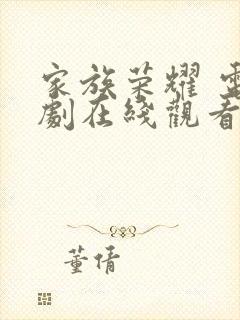 家族荣耀 電
劇在綫觀看
董倩